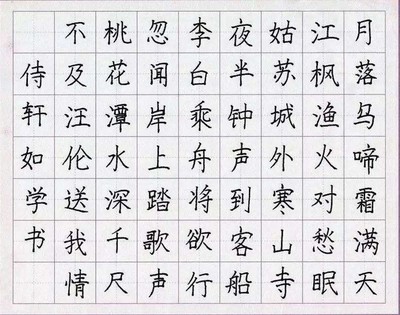 月落乌啼霜满天
江枫渔火对愁眠
姑苏城外寒山寺
夜半钟声到客船
李白乘舟将欲行
忽闻岸上踏歌声
桃花潭水深千尺
不及汪伦送我情
侍轩如学书